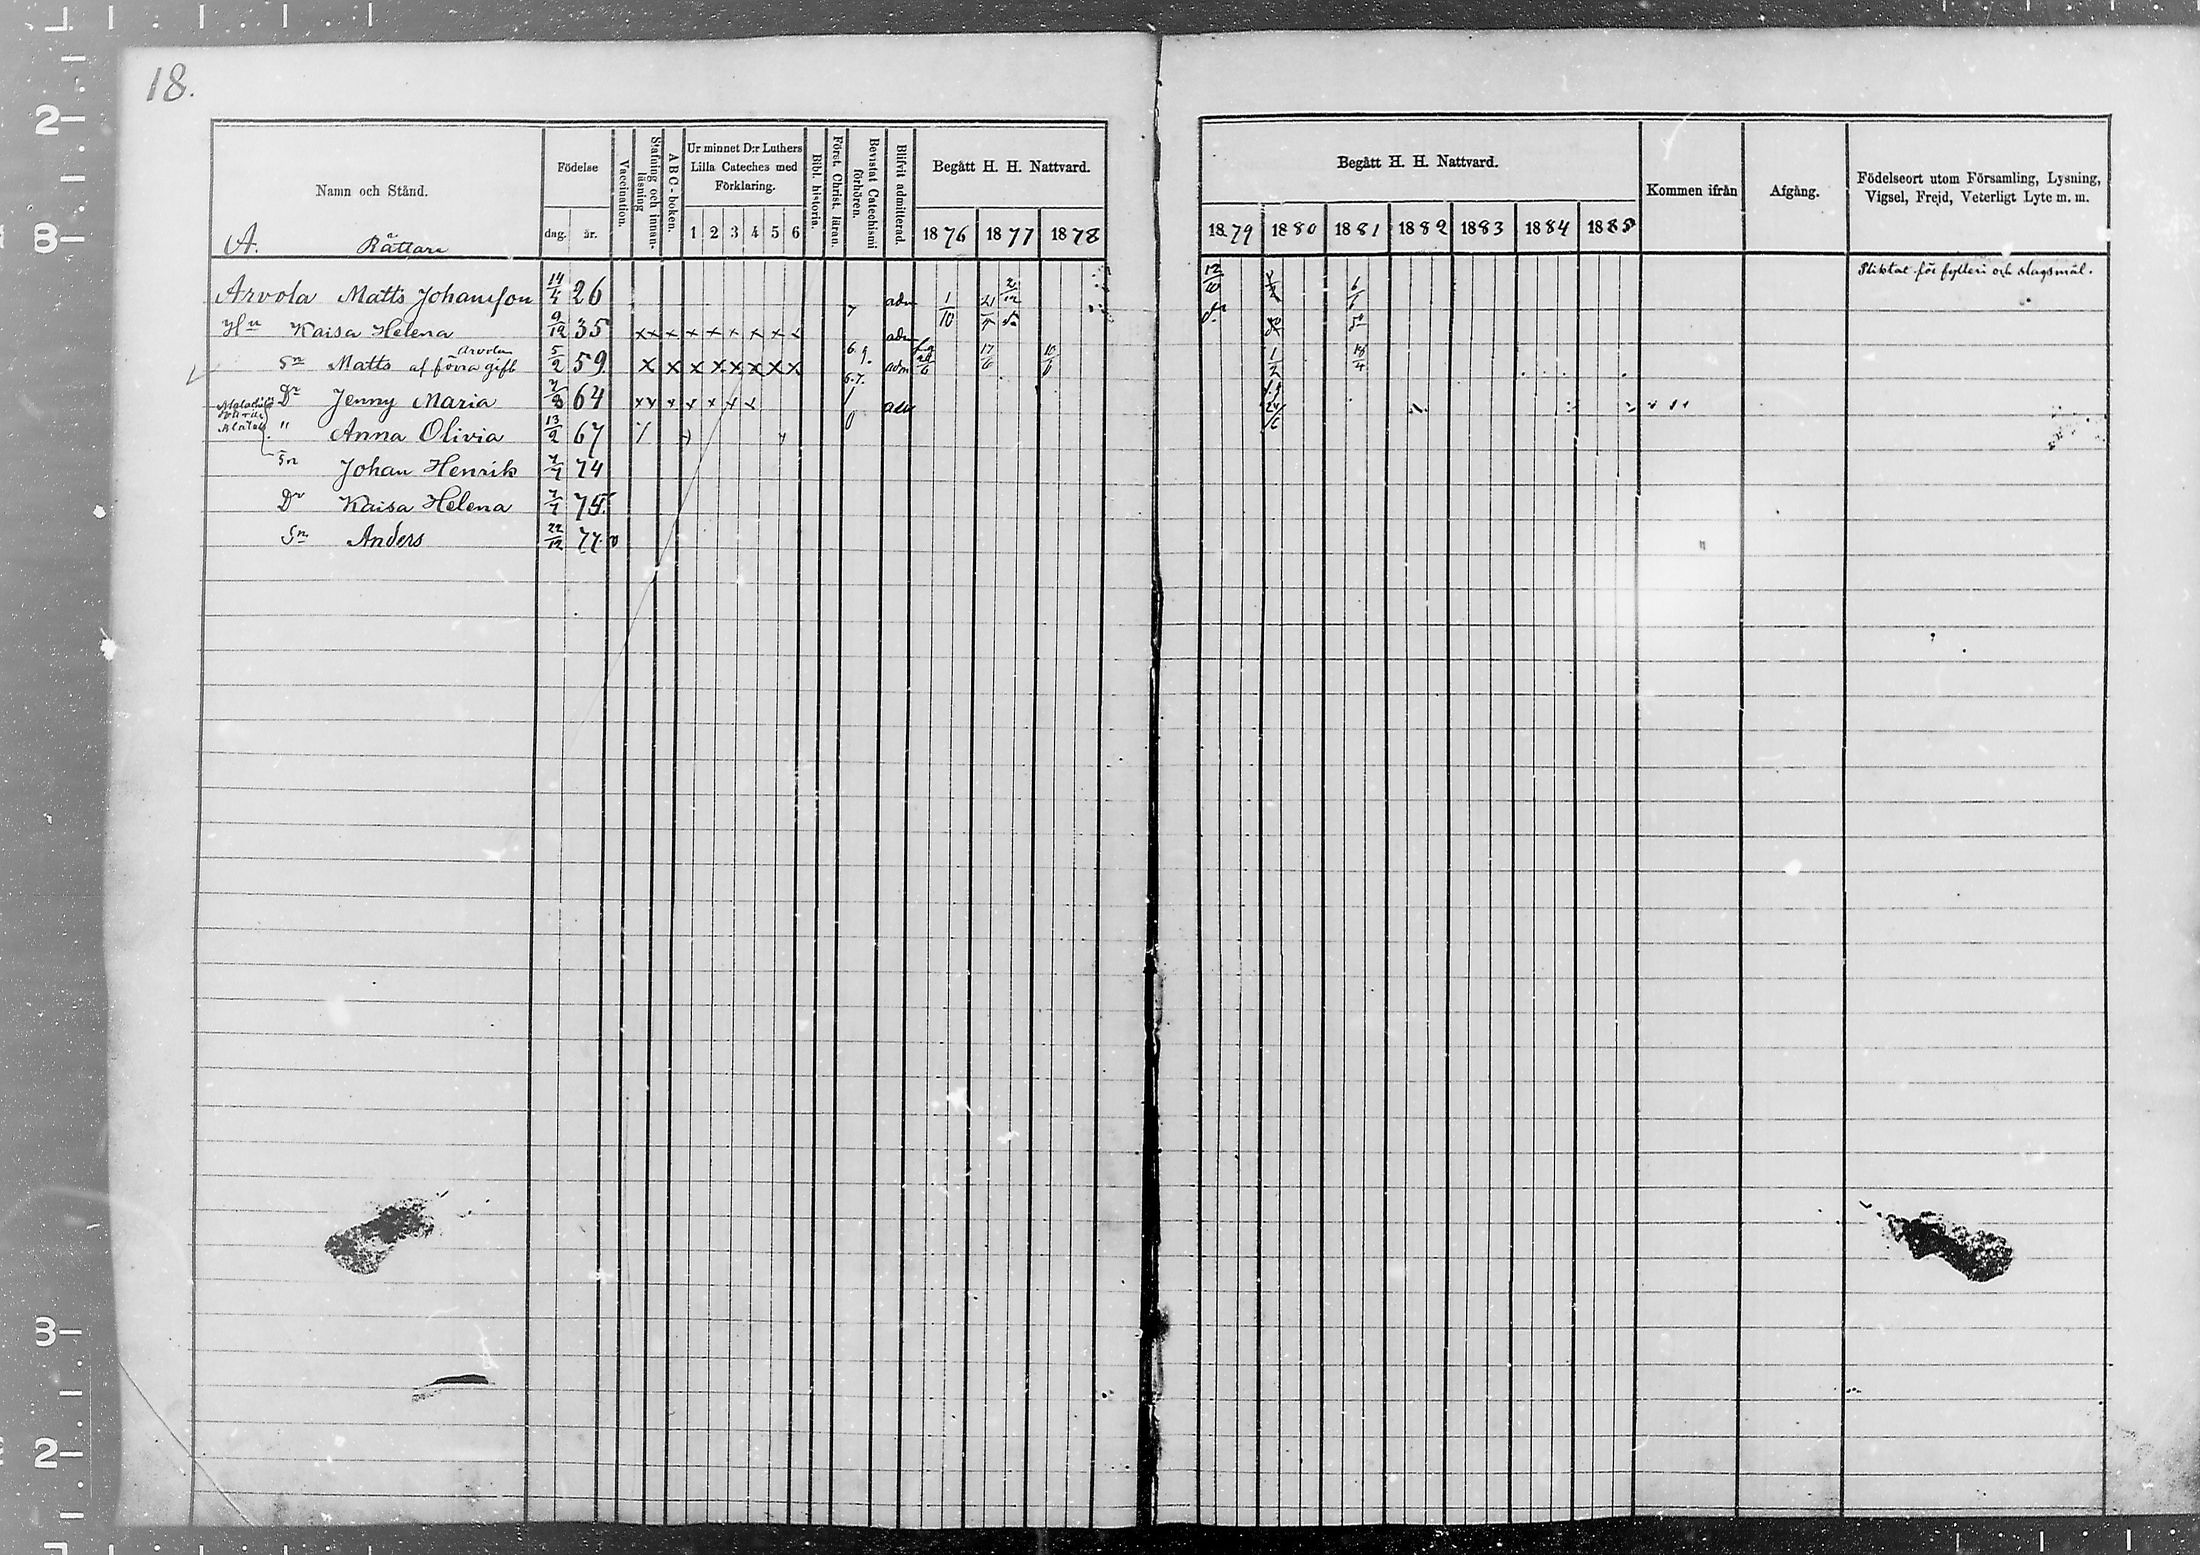 18.
Namn och Stånd.
Födelse
dag. år.
Vaccination.
Stafning och innan-läsning
ABC-boken.
Ur minnet D:r Luthers Lilla Cateches med Förklaring.
1 2 3 4 5 6
Bibl. historia.
Först. Christ. läran.
Bevistat Catechismi förhören.
Blifvit admitterad.
Begått H. H. Nattvard.
1876 1877 1878
Begått H. H. Nattvard.
1879 1880 1881 1882 1883 1884 1885
Kommen ifrån
Afgång.
Födelseort utom Församling, Lysning, Vigsel, Frejd, Veterligt Lyte m. m.
A. Rättare
Arvola Matts Johansson 14/4 26 adm 1/10 2/12 12/10 6/6 Pliktat för fylleri och slagsmål.
Hu Kaisa Helena 9/12 35 x x x x x x x x adm
Sn Matts af förra gift Arvola 5/2 59. x x x x x x x x x 6. 9. adm 17/6 1/2 18/4
Dr Jenny Maria 64 x x x x x x 6.7. adm 24/6
" Anna Olivia 13/2 67
Sn Johan Henrik 74
Dr Kaisa Helena 75.
Sn Anders 22/12 77.